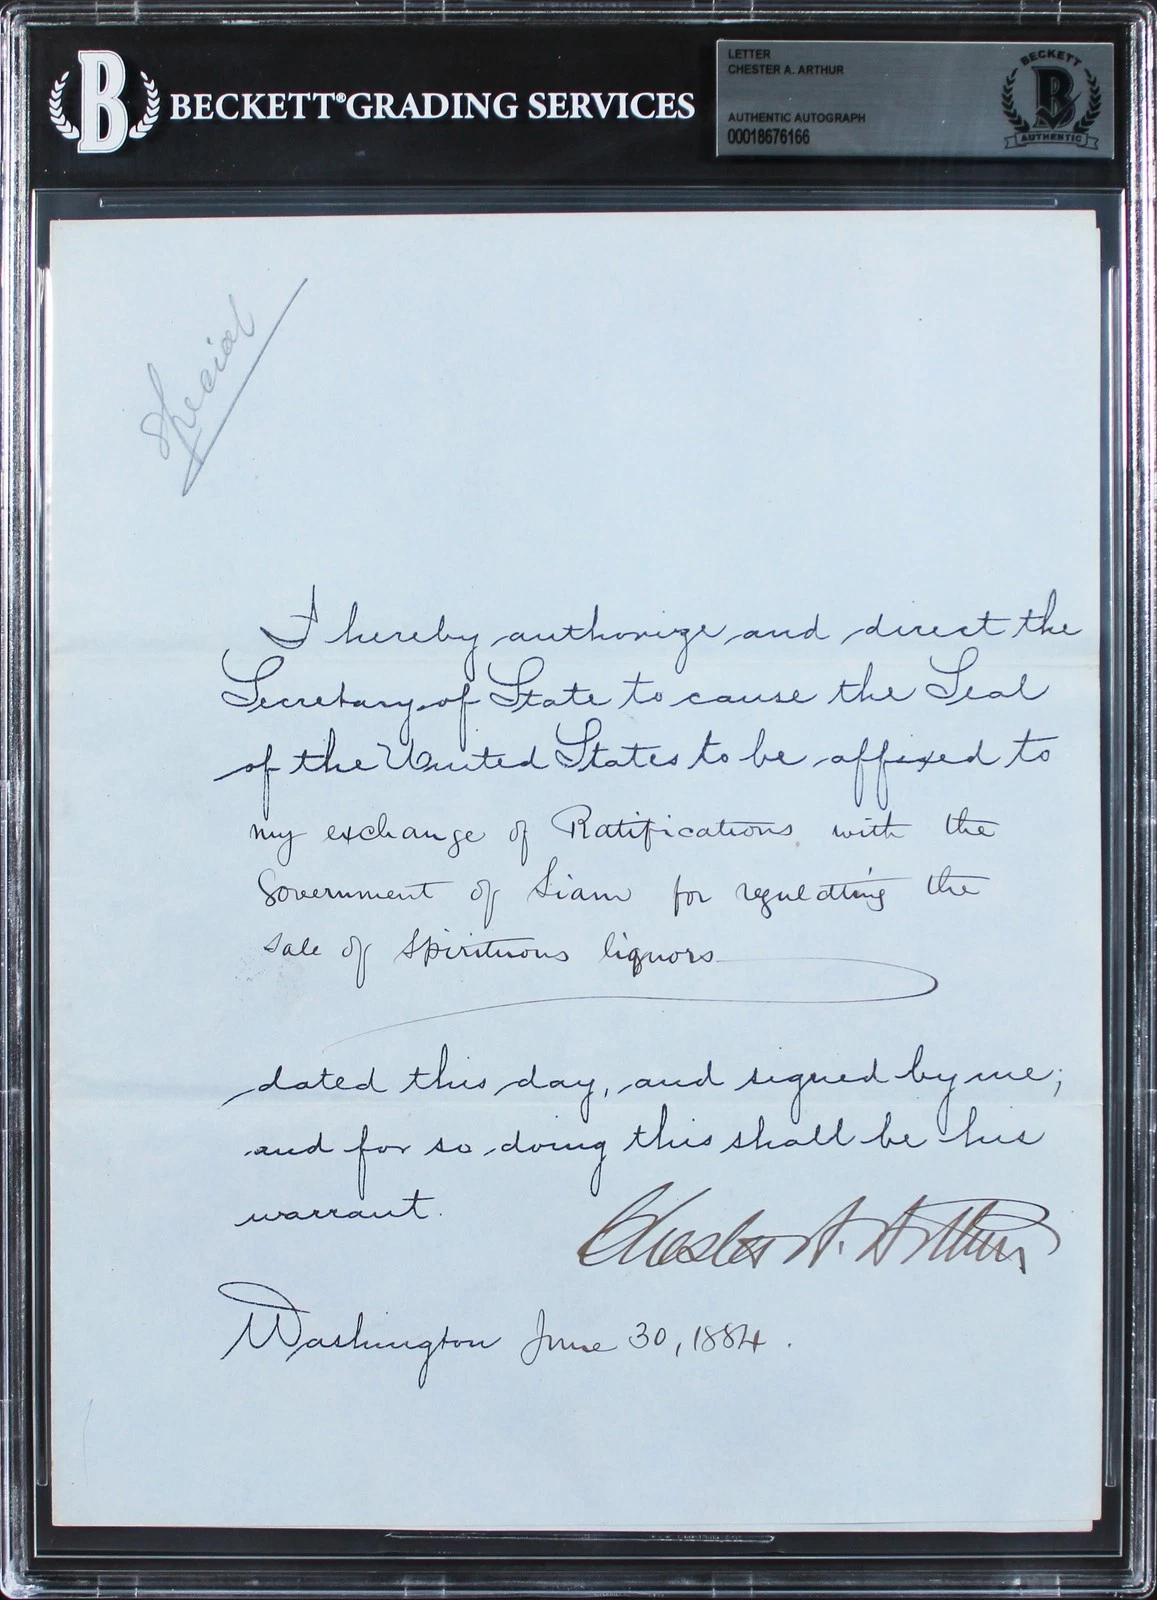 BECKETT® GRADING SERVICES
LETTER
CHESTER A. ARTHUR
AUTHENTIC AUTOGRAPH
00018676166
BECKETT
B
AUTHENTIC
Special
I hereby authorize and direct the
Secretary of State to cause the Seal
of the United States to be affixed to
my exchange of Ratifications with the
Government of Siam for regulating the
sale of spirituous liquors
dated this day, and signed by me;
and for so doing this shall be his
warrant.
Chester A. Arthur
Washington June 30, 1884.